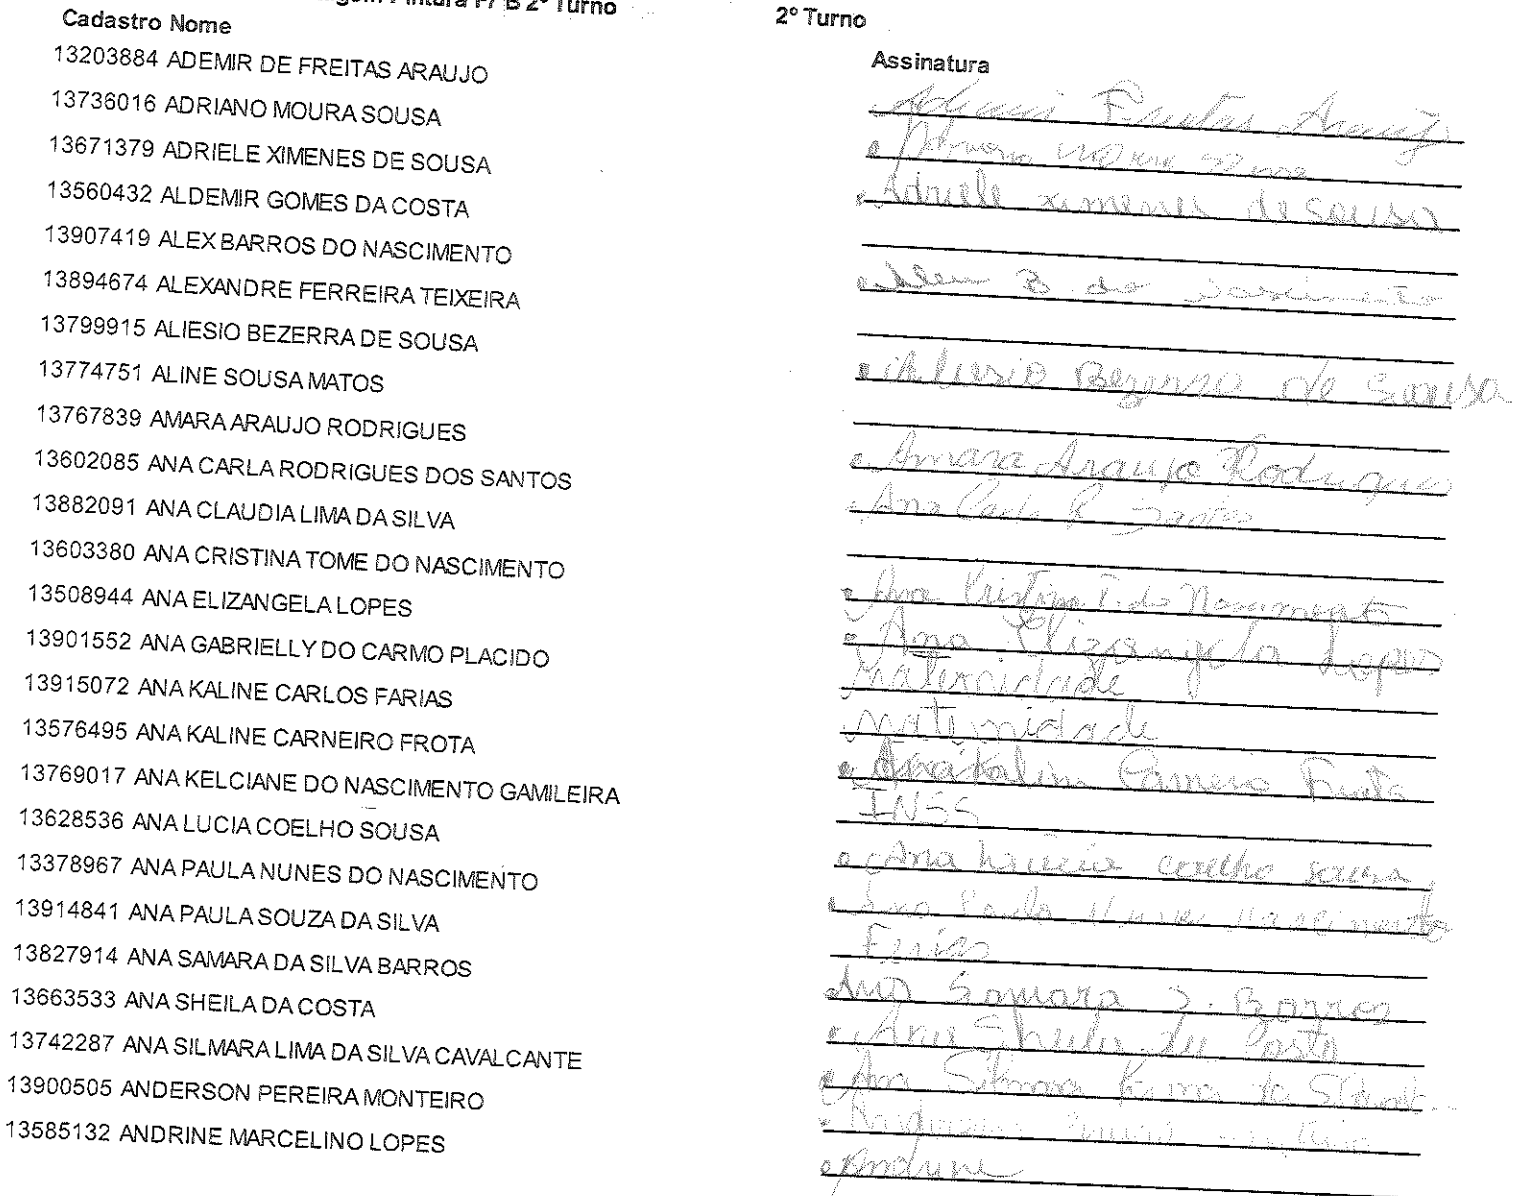 Pintura F7 B 2º Turno
2º Turno
Cadastro Nome
Assinatura
13203884 ADEMIR DE FREITAS ARAUJO
Freitas Araujo
13736016 ADRIANO MOURA SOUSA
13671379 ADRIELE XIMENES DE SOUSA
Adriele ximenes de sousa
13560432 ALDEMIR GOMES DA COSTA
13907419 ALEX BARROS DO NASCIMENTO
Alex B do Nascimento
13894674 ALEXANDRE FERREIRA TEIXEIRA
13799915 ALIESIO BEZERRA DE SOUSA
Aliesio Bezerra de Sousa
13774751 ALINE SOUSA MATOS
13767839 AMARA ARAUJO RODRIGUES
Amara Araujo Rodrigues
13602085 ANA CARLA RODRIGUES DOS SANTOS
Ana Carla R Santos
13882091 ANA CLAUDIA LIMA DA SILVA
13603380 ANA CRISTINA TOME DO NASCIMENTO
Ana Cristina T. do Nascimento
13508944 ANA ELIZANGELA LOPES
Ana Elizangela Lopes
13901552 ANA GABRIELLY DO CARMO PLACIDO
Maternidade
13915072 ANA KALINE CARLOS FARIAS
maternidade
13576495 ANA KALINE CARNEIRO FROTA
Ana Kaline Carneiro Frota
13769017 ANA KELCIANE DO NASCIMENTO GAMILEIRA
INSS
13628536 ANA LUCIA COELHO SOUSA
Ana Lucia coelho sousa
13378967 ANA PAULA NUNES DO NASCIMENTO
Ana Paula Nunes Nascimento
13914841 ANA PAULA SOUZA DA SILVA
Ferias
13827914 ANA SAMARA DA SILVA BARROS
Ana Samara S. Barros
13663533 ANA SHEILA DA COSTA
Ana Sheila da Costa
13742287 ANA SILMARA LIMA DA SILVA CAVALCANTE
Ana Silmara Lima da
13900505 ANDERSON PEREIRA MONTEIRO
13585132 ANDRINE MARCELINO LOPES
Andrine